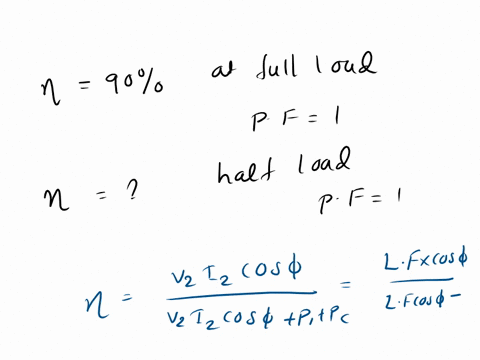 η = 90% at full load
P.F = 1
η = ? half load
P.F = 1
η = V₂ I₂ cos ϕ / V₂ I₂ cos ϕ + Pᵢ + P꜀ = L.F x cos ϕ / L.F cos ϕ –